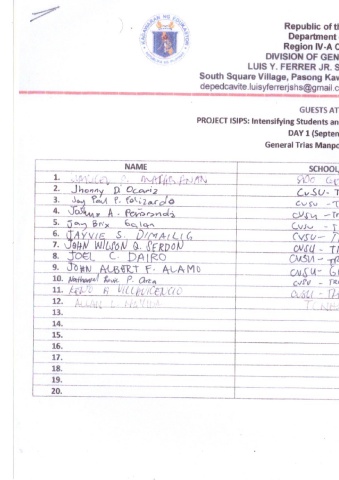 KAGAWARAN NG EDUKASYON
Republic of th
Department
Region IV-A C
DIVISION OF GEN
LUIS Y. FERRER JR. S
South Square Village, Pasong Kaw
depedcavite.luisyferrerjshs@gmail.c
GUESTS AT
PROJECT ISIPS: Intensifying Students an
DAY 1 (Septem
General Trias Manpo
NAME SCHOOL/
1.
2. Jhonny D. Ocariz CvSU - T
3. Jay Paul P. Felizardo CVSU - T
4. A. CVSU - TR
5. Jay Brix Galan CVSU - T
6. JAYVIE S. DIMAILIG CVSU - TR
7. JOHN WILSON Q. SERDON CVSU - TR
8. JOEL C. DAIRO CVSU - TR
9. JOHN ALBERT F. ALAMO CVSU - G
10. Nathaniel P. CVSU - TR
11. VILLAVICENCIO CVSU -
12.
13.
14.
15.
16.
17.
18.
19.
20.